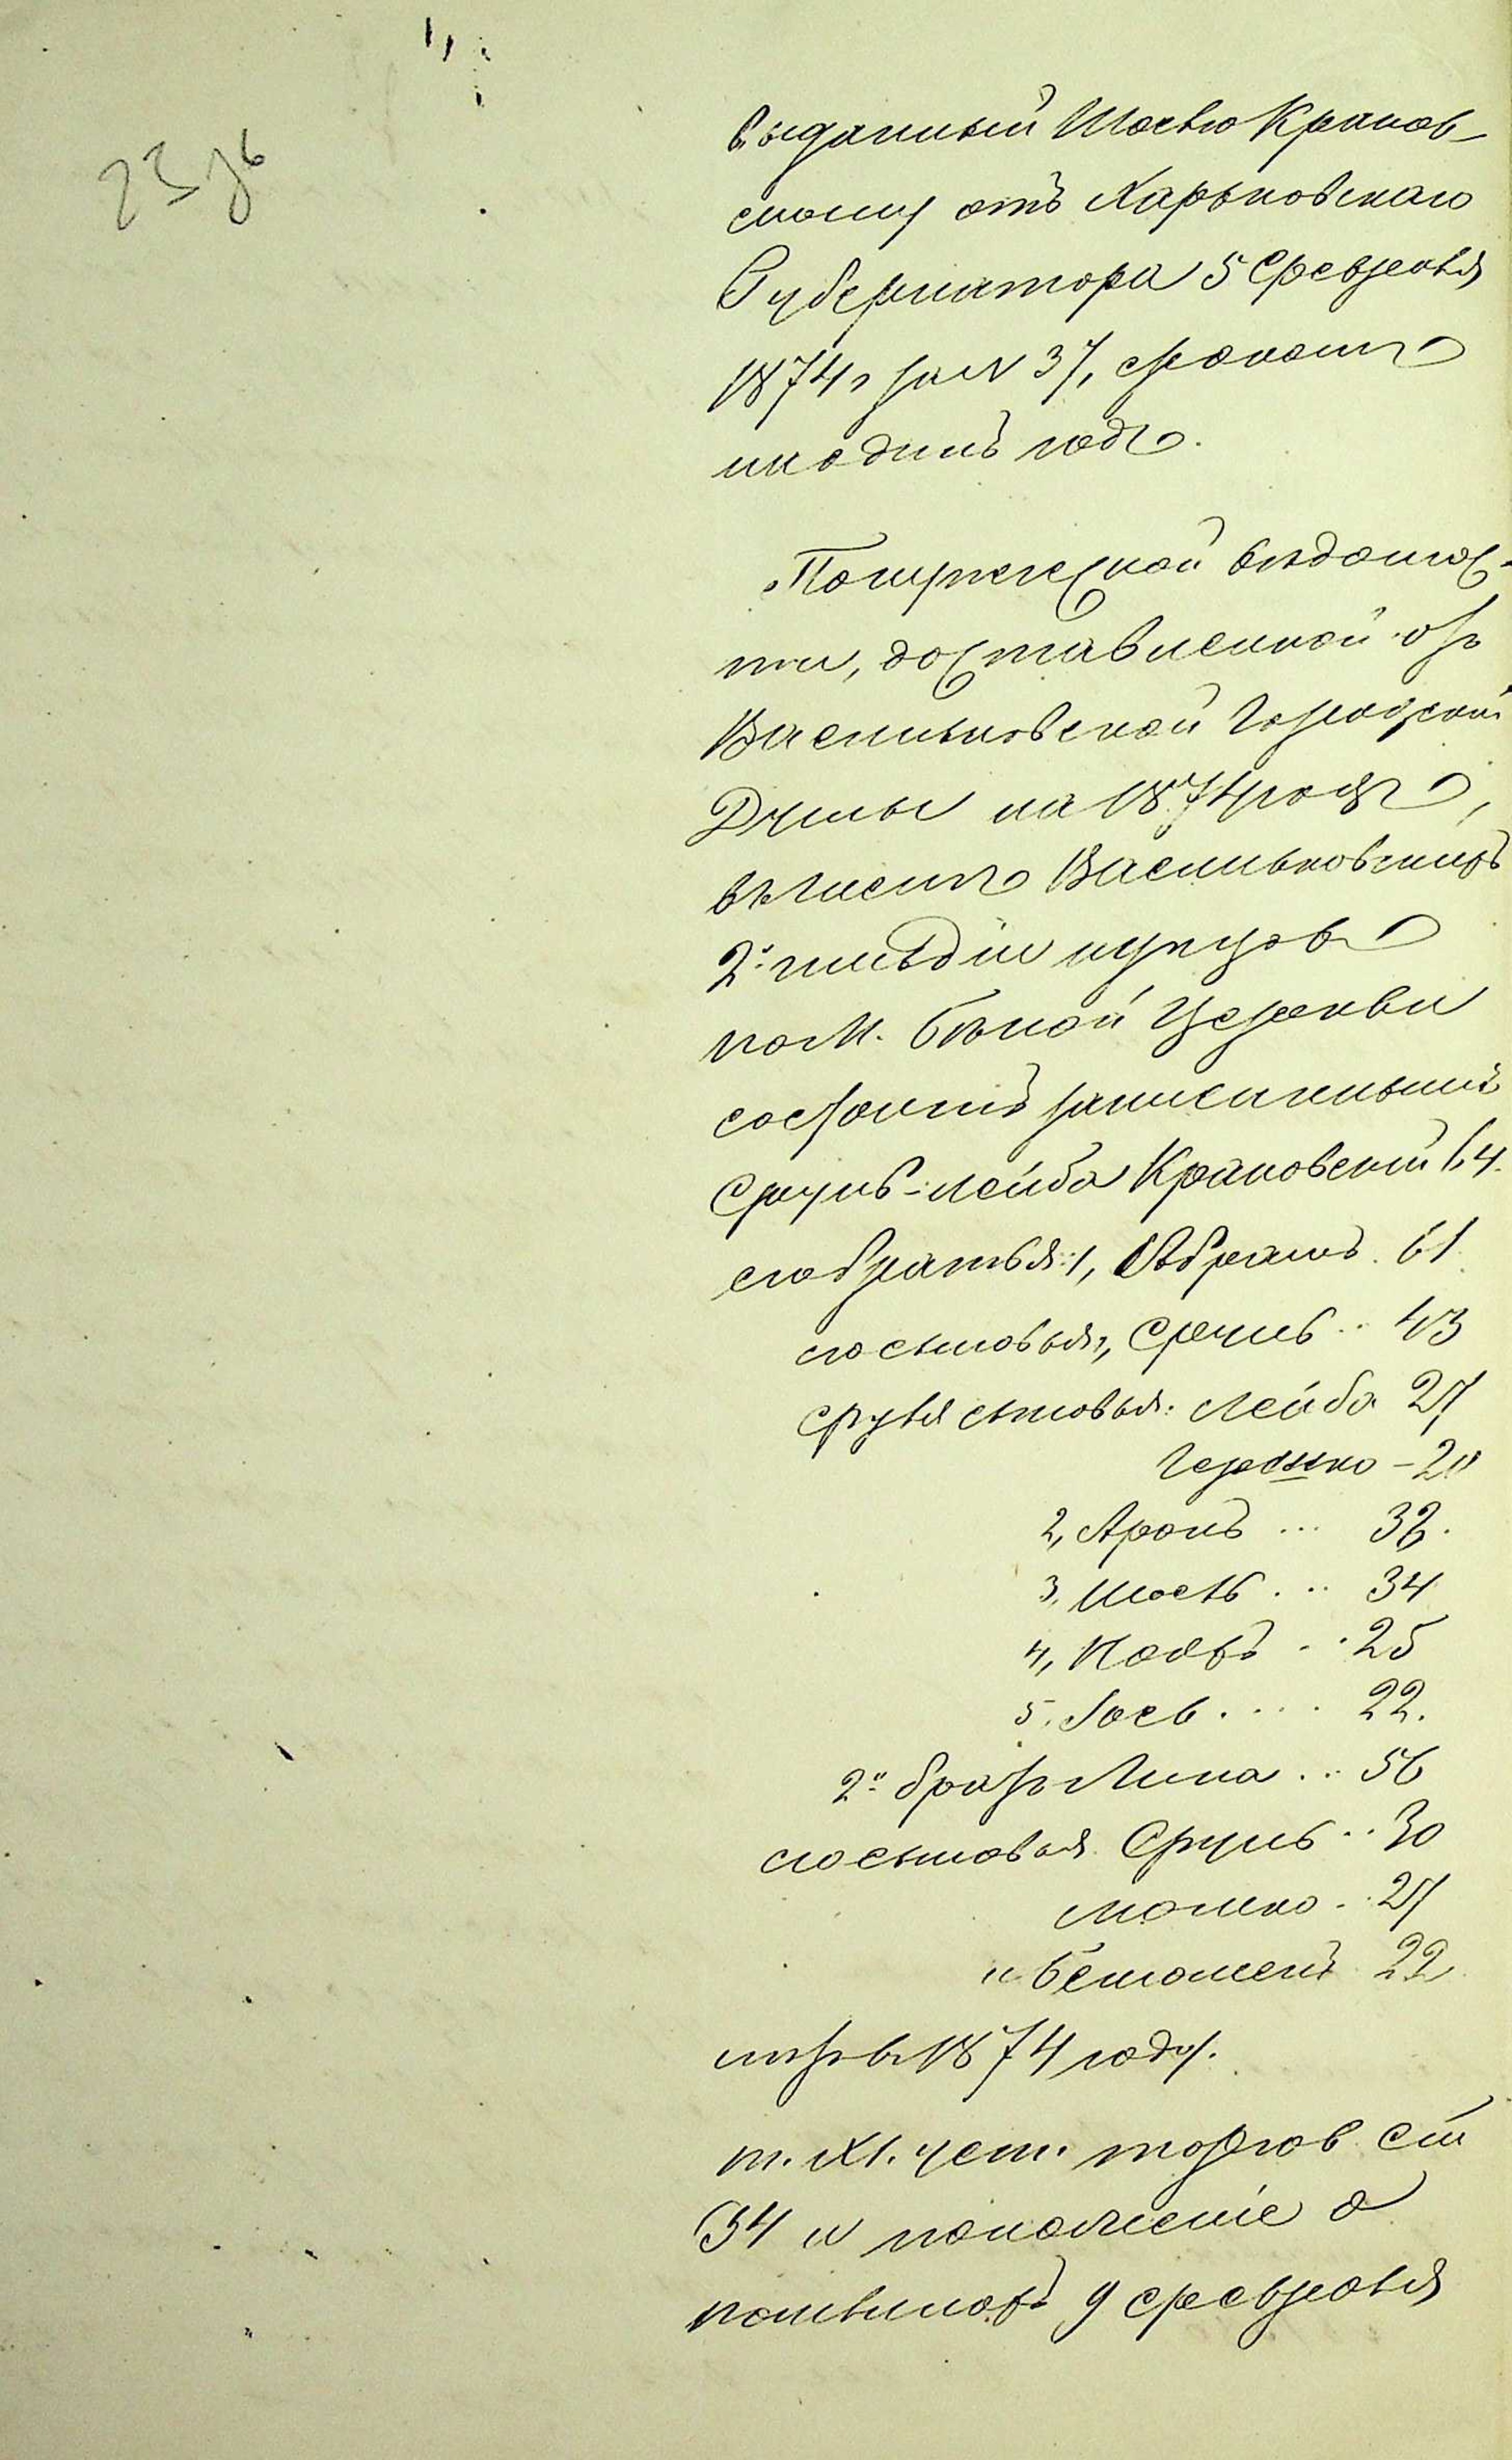 выданный Иосью Краков-
скому отъ Харьковскаго
Губернатора 5 Февраля
1874 г за N 37, срокомъ
на одинъ годъ.
По купеческой вѣдомос-
ти, доставленной отъ
Васильковской Городской
Думы на 1874 годъ,
въ числѣ Васильковскихъ
2й гильдіи купцовъ
по м. Бѣлой Церкви
состоитъ записаннымъ
Сруль-Лейба Краковскій 64.
его братья: 1, Абрамъ. 61
его сыновья, Сруль .. 43
Сруля сыновья: Лейба 27
Гершко - 20
2, Аронъ ... 32.
3, Иось ... 34
4, Іосъ .. 25
5, Іось .... 22.
2й братъ Липа ... 56
его сыновья Сруль .. 30
Мошко .. 27
и Беніоменъ 22
лѣтъ въ 1874 году.
т. XI. уст. торгов ст
34 и положеніе о
пошлинахъ 9 февраля